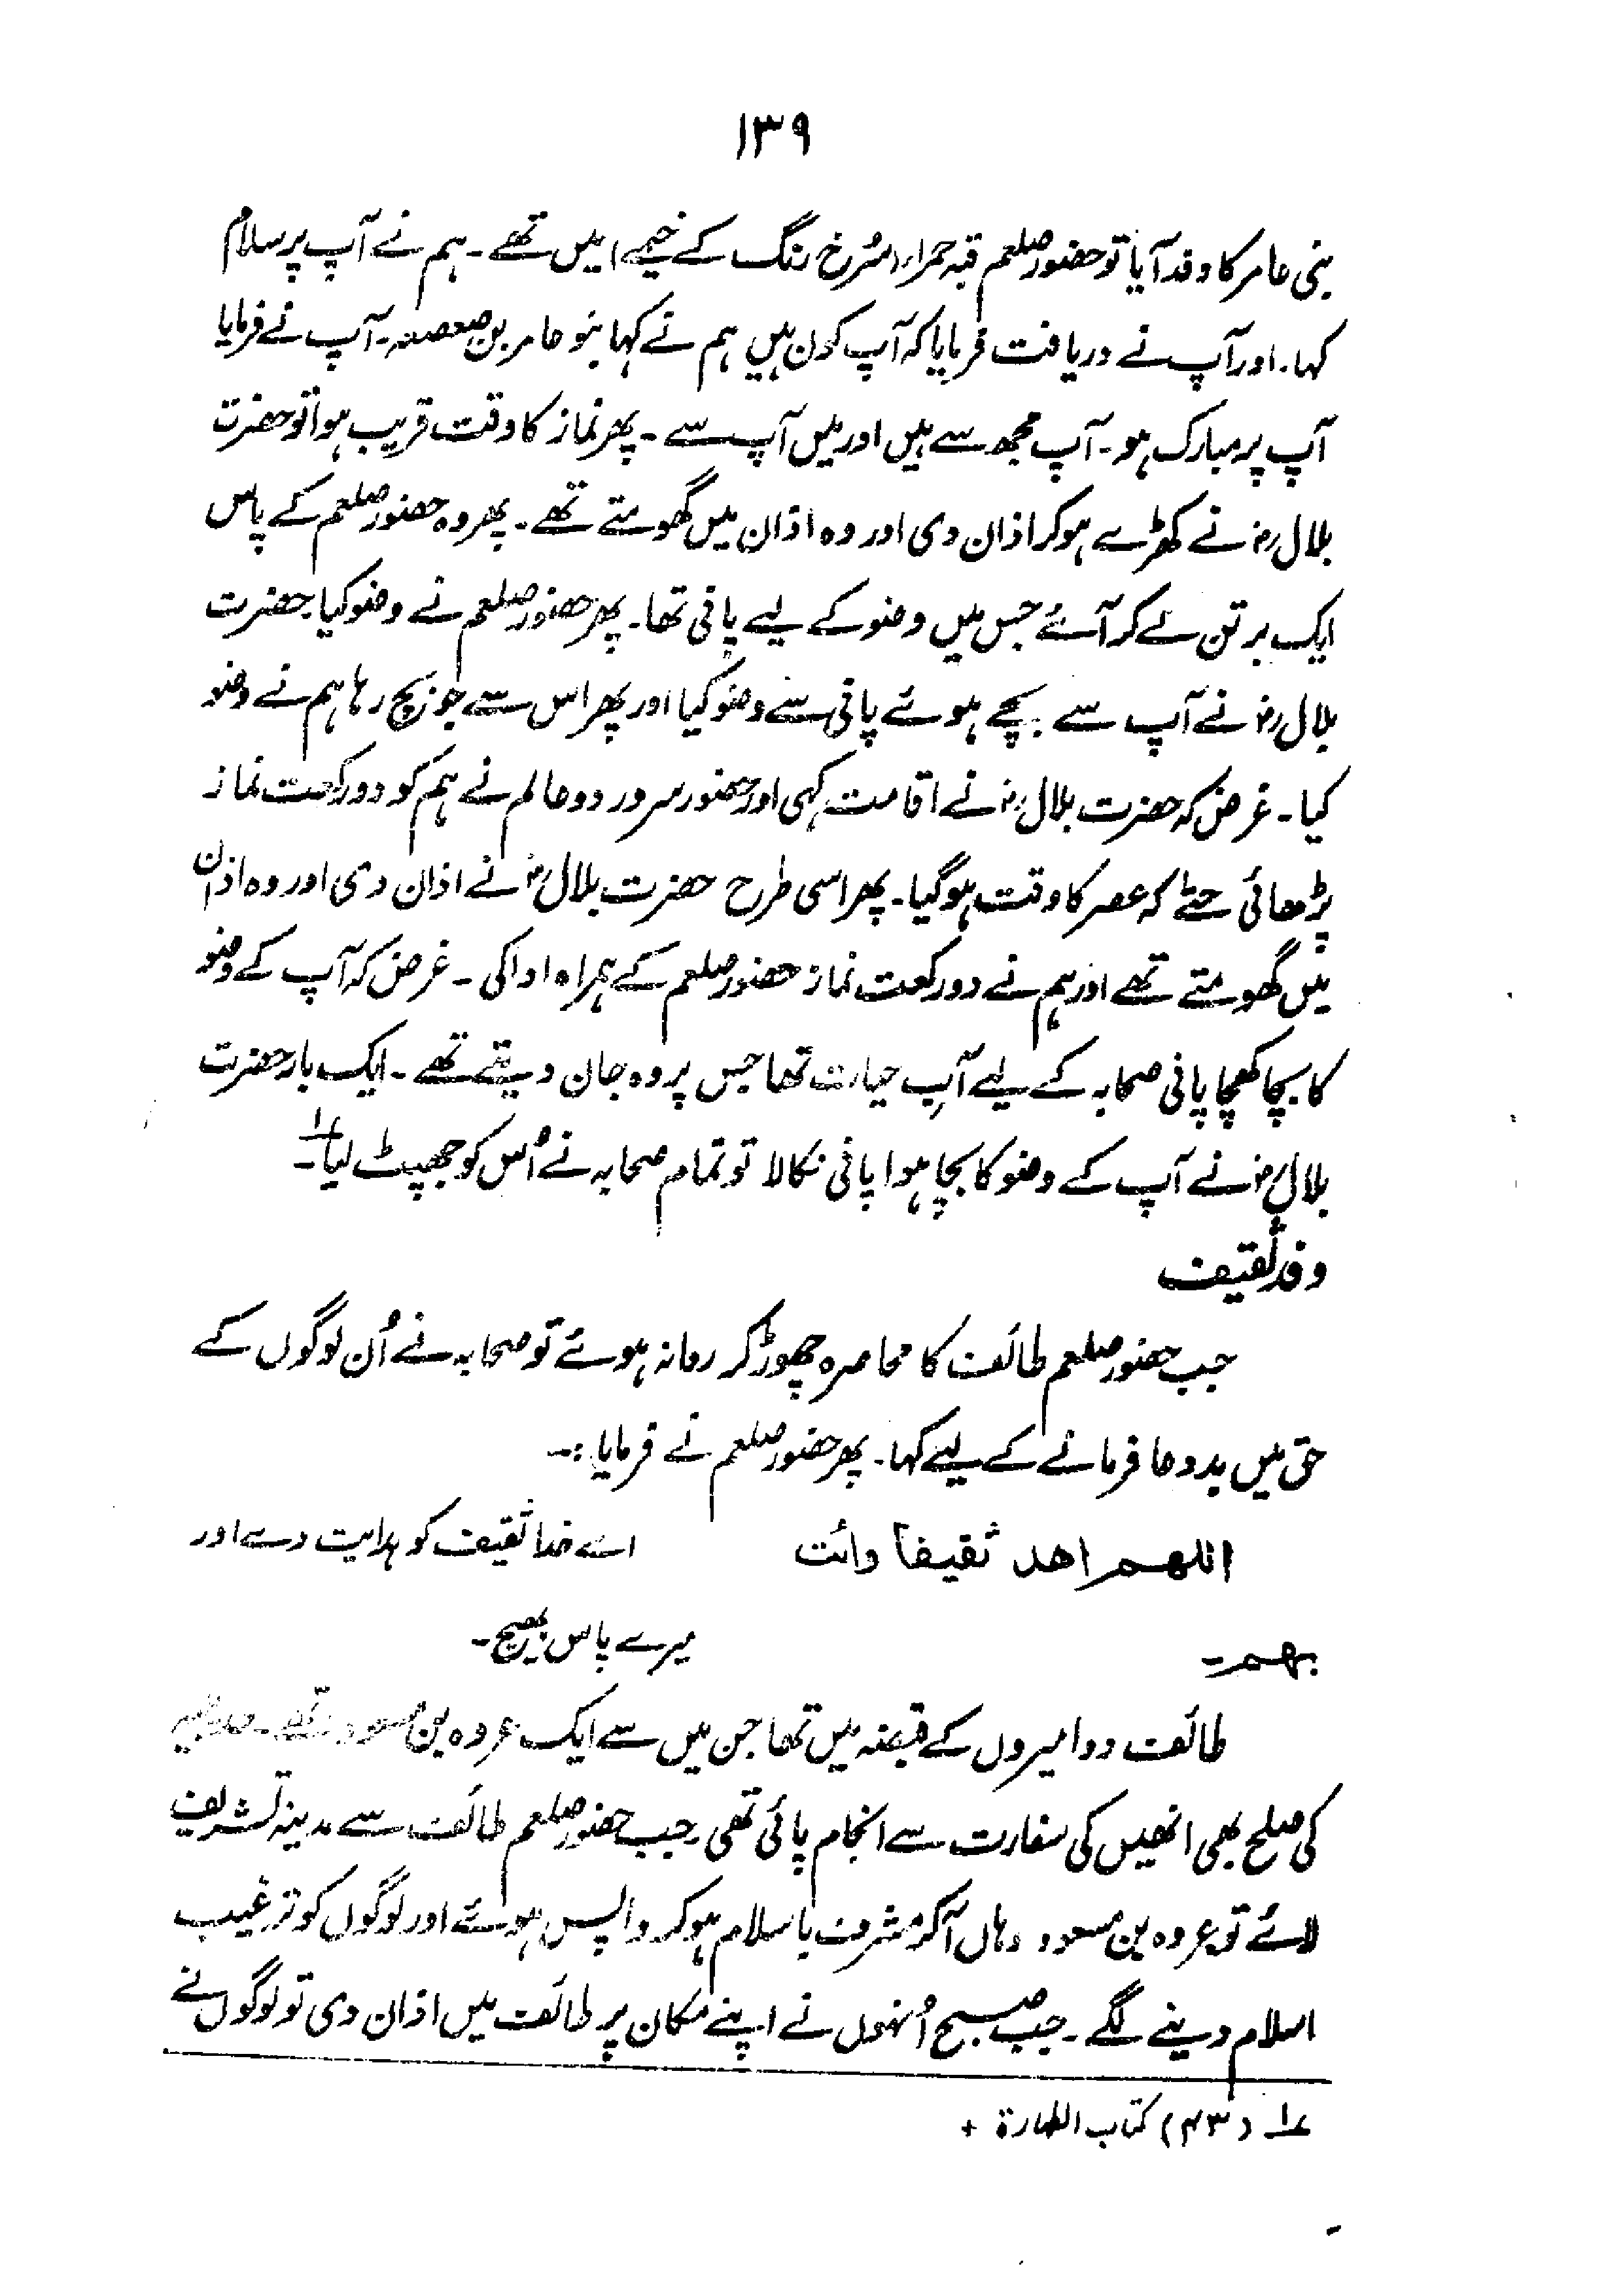 ۱۳۹
بنی عامر کا وفد آیا تو حضور صلعم قبہ حمراء (سُرخ رنگ کے خیمے) میں تھے۔ ہم نے آپ پر سلام
کہا۔ اور آپ نے دریافت فرمایا کہ آپ کون ہیں ہم نے کہا بنو عامر بن صعصعہ۔ آپ نے فرمایا
آپ پر مبارک ہو۔ آپ مجھ سے ہیں اور میں آپ سے۔ پھر نماز کا وقت قریب ہوا تو حضرت
بلال رضؓ نے کھڑے ہو کر اذان دی اور وہ اذان میں گھومتے تھے۔ پھر وہ حضور صلعم کے پاس
ایک برتن لے کر آئے جس میں وضو کے لیے پانی تھا۔ پھر حضور صلعم نے وضو کیا۔ حضرت
بلال رضؓ نے آپ سے بچے ہوئے پانی سے وضو کیا اور پھر اس سے جو بچ رہا ہم نے وضو
کیا۔ غرض کہ حضرت بلال رضؓ نے اقامت کہی اور حضور سرور دو عالم نے ہم کو دو رکعت نماز
پڑھائی حتےٰ کہ عصر کا وقت ہو گیا۔ پھر اسی طرح حضرت بلال رضؓ نے اذان دی اور وہ اذان
میں گھومتے تھے اور ہم نے دو رکعت نماز حضور صلعم کے ہمراہ ادا کی۔ غرض کہ آپ کے وضو
کا بچا کھچا پانی صحابہ کے لیے آبِ حیات تھا جس پر وہ جان دیتے تھے۔ ایک بار حضرت
بلال رضؓ نے آپ کے وضو کا بچا ہوا پانی نکالا تو تمام صحابہ نے اُس کو جھپٹ لیا۔؎۱
وفد ثقیف
جب حضور صلعم طائف کا محاصرہ چھوڑ کر روانہ ہوئے تو صحابہ نے اُن لوگوں کے
حق میں بد دعا فرمانے کے لیے کہا۔ پھر حضور صلعم نے فرمایا :۔
اللهم اهد ثقيفا وائت اے خدا ثقیف کو ہدایت دے اور
بهم۔ میرے پاس بھیج۔
طائف دو امیروں کے قبضہ میں تھا جن میں سے ایک عروہ بن مسعود تھے۔ حدیبیہ
کی صلح بھی انھیں کی سفارت سے انجام پائی تھی۔ جب حضور صلعم طائف سے مدینہ تشریف
لائے تو عروہ بن مسعود وہاں آکر مشرف باسلام ہو کر واپس ہوئے اور لوگوں کو ترغیب
اسلام دینے لگے۔ جب صبح اُنہوں نے اپنے مکان پر طائف میں اذان دی تو لوگوں نے
؎۱ (۴۳) کتاب الطہارۃ +